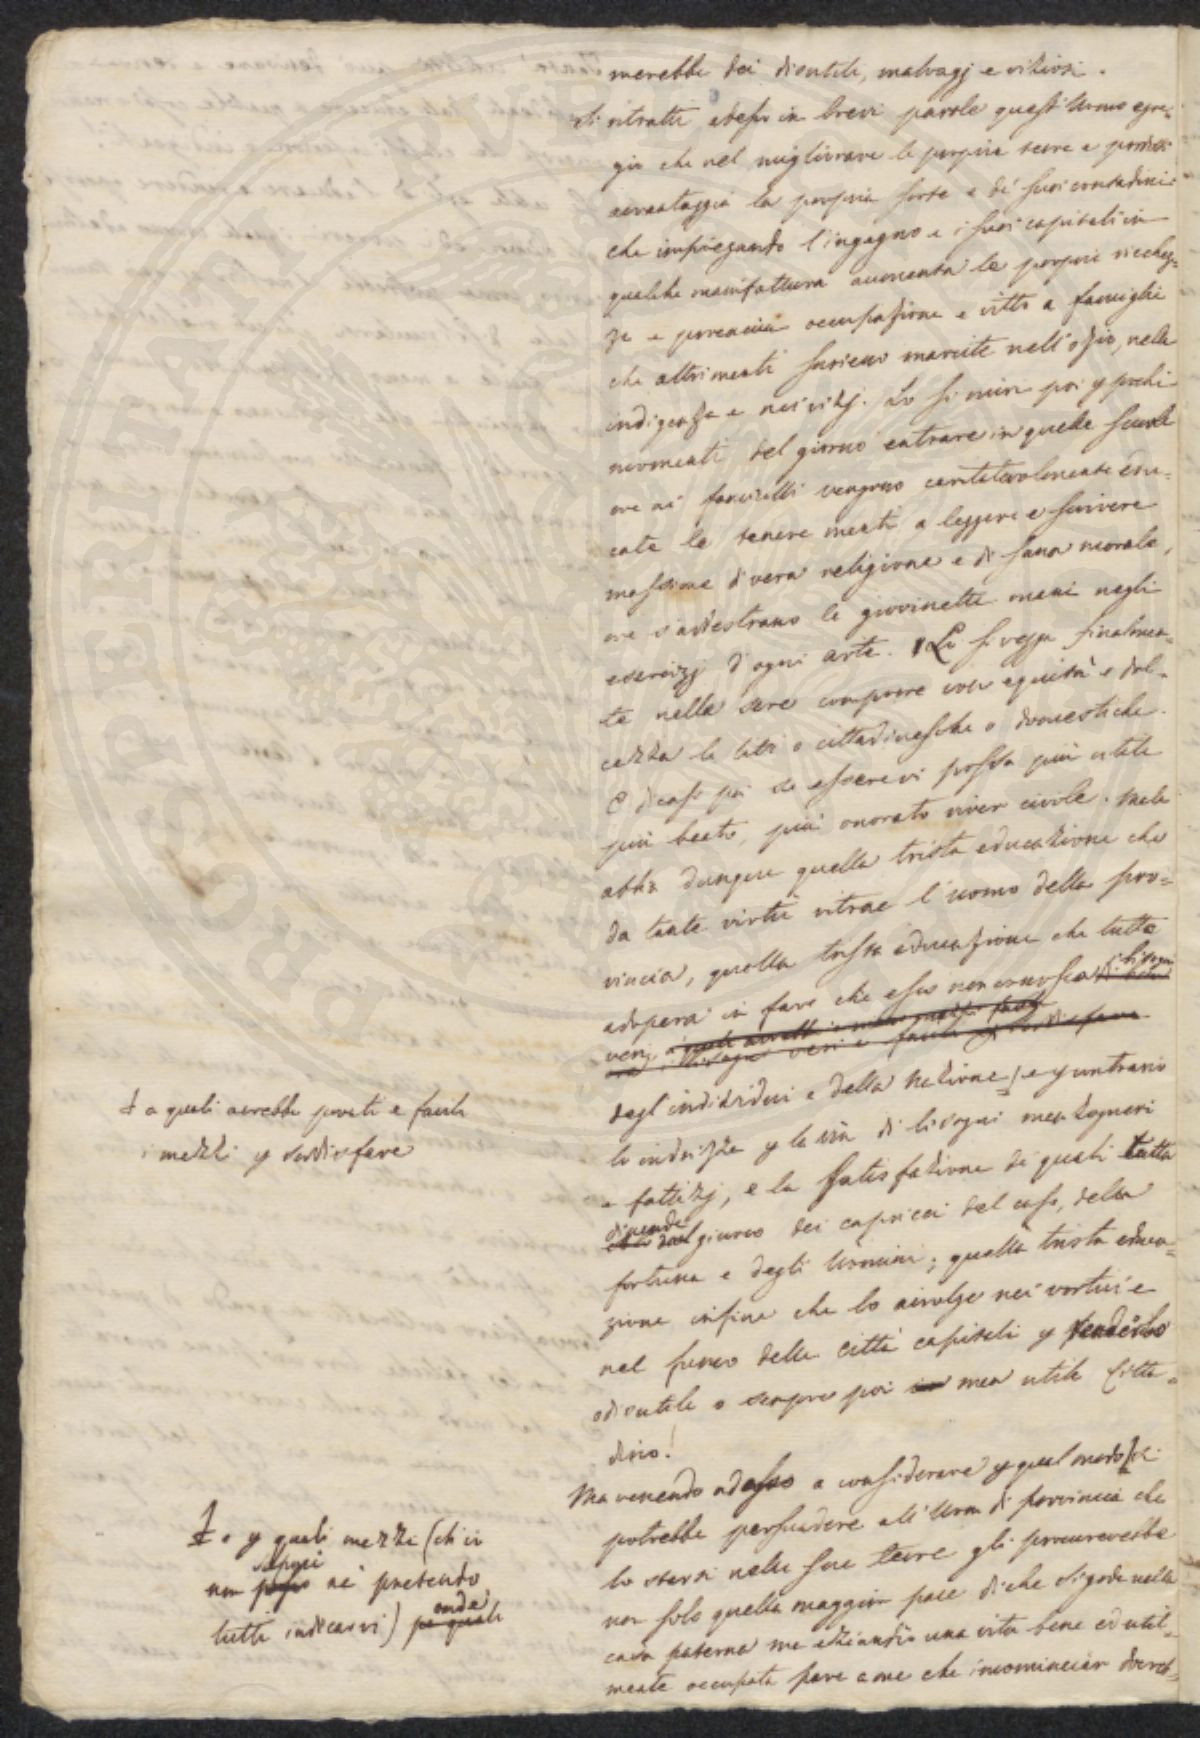 merebbe dei disutili, malvagj e viziosi.
Si ritratti adesso in brevi parole quest'Uomo egre-
gio che nel migliorare le proprie terre e
avvantaggia la propria sorte e de' suoi contadini:
che impiegando l'ingegno e i suoi capitali in
qualche manifattura aumenta le proprie ricchez=
ze e procaccia occupazione e vitto a famiglie
che altrimenti sarieno marcite nell'ozio, nella
indigenza e nei vizj. Lo si miri poi p pochi
momenti del giorno entrare in quelle scuole
ove ai fanciulli vengono caritatevolmente edu-
cate le tenere menti a leggere e scrivere
massime di vera religione e di sana morale,
ove s'addestrano le giovinette mani negli
esercizj d'ogni arte. Lo si vegga finalmen=
te nella sera comporre con equità e dol-
cezza le liti o cittadinesche o domestiche.
E dicasi poi se esservi possa più utile
più beato, più onorato viver civile. Male
abbia dunque quella trista educazione che
da tante virtù ritrae l'uomo della pro=
vincia, quella trista educazione che tutta
adopera in fare che esso non conosca i bisogni
veri
degl'individui e della Nazione, e p contrario
lo indrizza p la via di bisogni menzogneri
e fattizj, e la satisfazione de quali tutta
dipende
dal giuoco dei capricci del caso, della
fortuna e degli Uomini; quella trista educa=
zione infine che lo avvolge nei vortici e
nel fumo delle città capitali p renderlo
disutile o sempre poi men utile Citta=
dino!
‡ a quali avrebbe pronti e facili
i mezzi p soddisfare
Ma venendo adesso a considerare p qual modo si
potrebbe persuadere all'Uom di provincia che
lo starsi nelle sue terre gli procurerebbe
non solo quella maggior pace di che si gode nella
casa paterna ma eziandio una vita bene ed util=
mente occupata pare a me che incominciar dovreb=
‡ o p quali mezzi (chi io
saprei
non posso nè pretendo
tutti indicarvi) pe quali
onde